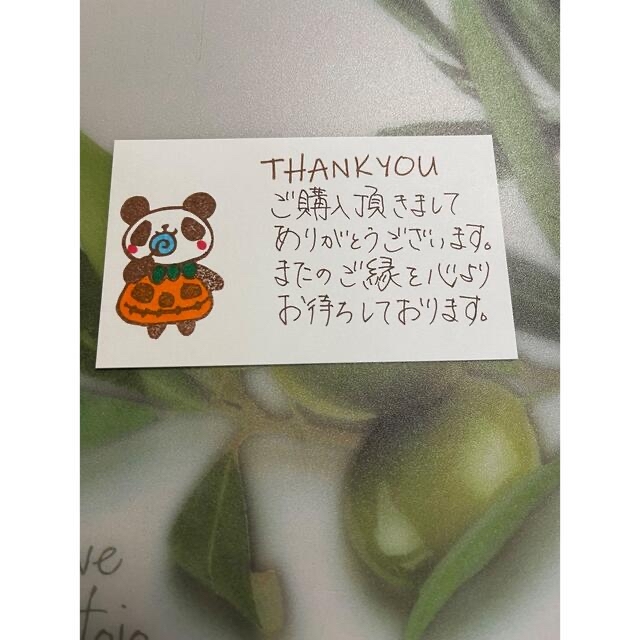 THANKYOU
ご購入頂きまして
ありがとうございます。
またのご縁を心より
お待ちしております。